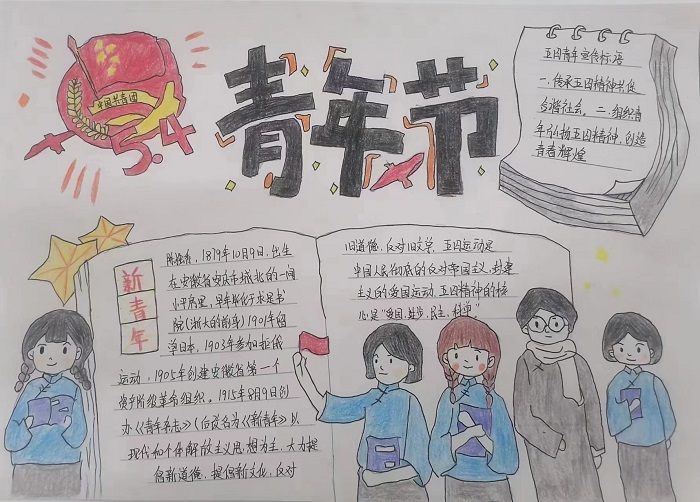 中国共青团
5.4
青年节
五四青年宣传标语
一.传承五四精神共促
合谐社会。二.组织青
年弘扬五四精神,创造
青春辉煌
新青年
陈独秀,1879年10月9日,出生
在安徽省安庆市城北的一间
小平房里,早年毕化于求是书
院(浙大的前身)1901年留
学日本,1903年参加拒俄
运动,1905年创建安徽省第一个
资产阶级革命组织。1915年8月9日创
办《青年杂志》(后改名为《新青年》以
现代和个体解放主义思想为主,大力提
倡新道德,提倡新文化,反对
旧道德,反对旧文学,五四运动是
中国人民彻底的反对帝国主义,封建
主义的爱国运动,五四精神的核
心是“爱国,进步,民主,科学”